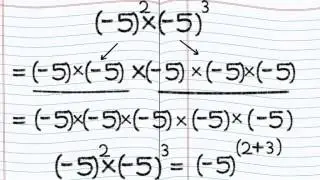 (-5)²×(-5)³
= (-5)×(-5) ×(-5) ×(-5)×(-5)
= (-5)×(-5)×(-5) × (-5) × (-5)
(-5)²×(-5)³ = (-5)⁽²⁺³⁾